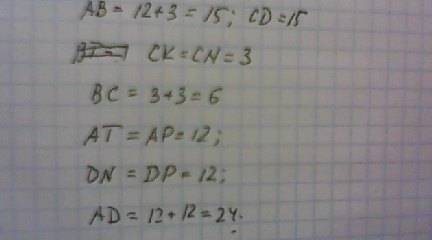 AB = 12+3 = 15; CD = 15
CK = CN = 3
BC = 3+3 = 6
AT = AP = 12;
DN = DP = 12;
AD = 12+12 = 24.